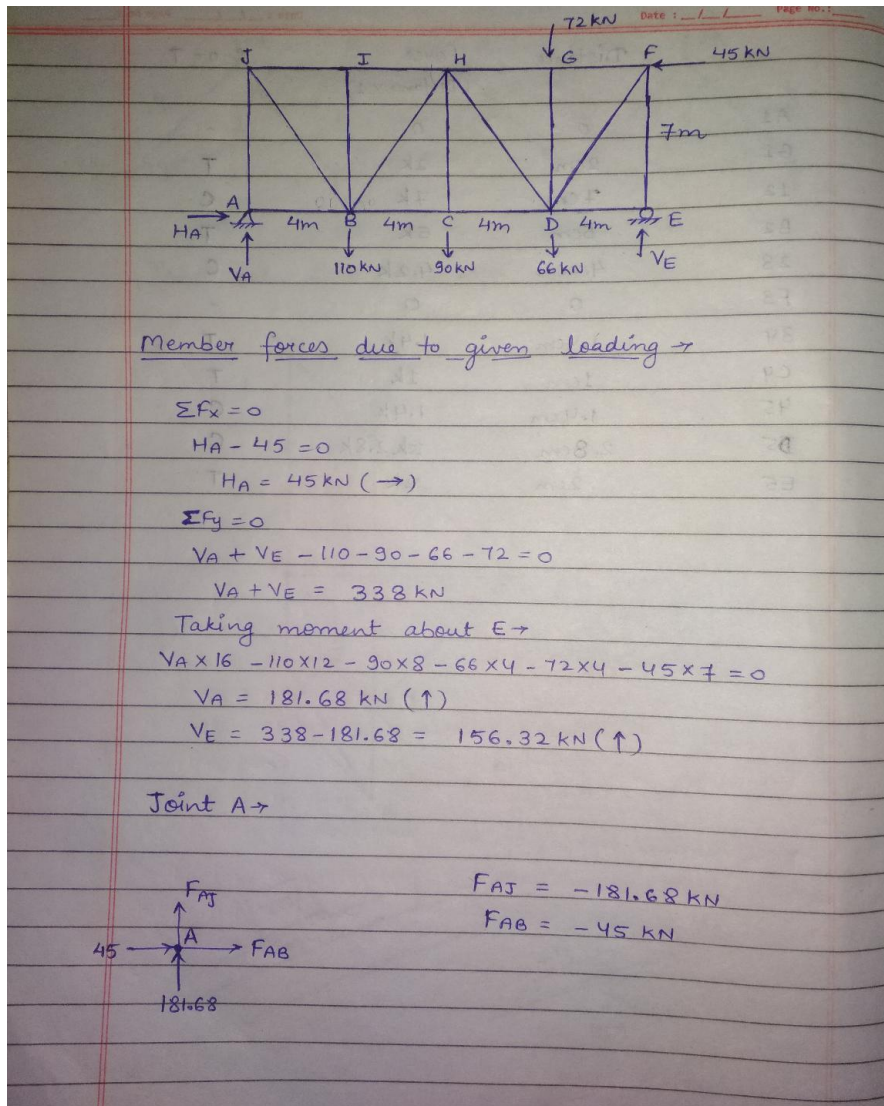 Date : __/__/__ Page No.:
72 kN
J I H G F 45 kN
7m
A 4m B 4m C 4m D 4m E
HA
VA 110 kN 90 kN 66 kN VE
Member forces due to given loading →
ΣFx = 0
HA - 45 = 0
HA = 45 kN (→)
ΣFy = 0
VA + VE - 110 - 90 - 66 - 72 = 0
VA + VE = 338 kN
Taking moment about E →
VA × 16 - 110×12 - 90×8 - 66×4 - 72×4 - 45×7 = 0
VA = 181.68 kN (↑)
VE = 338 - 181.68 = 156.32 kN (↑)
Joint A →
FAJ
FAJ = -181.68 kN
FAB = -45 kN
45 A FAB
181.68